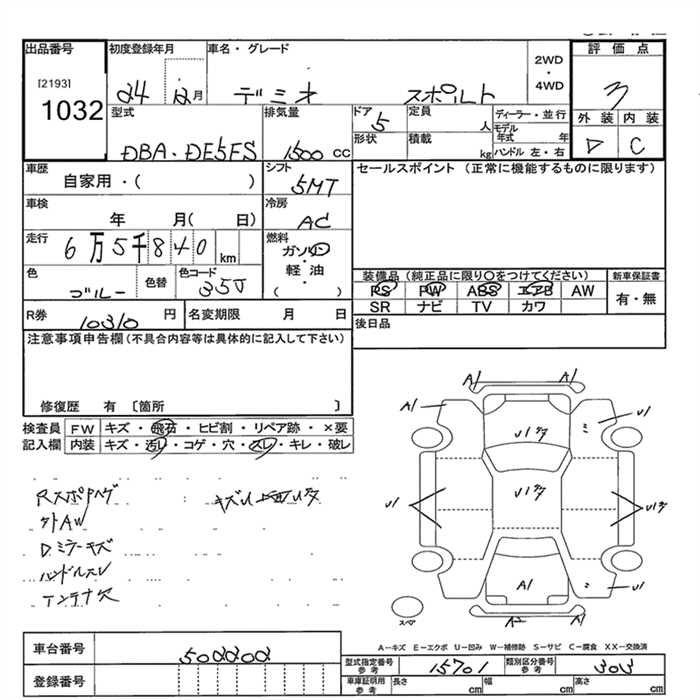 出品番号 初度登録年月 車名・グレード 2WD・4WD 評価点
[2193]
1032
24 12月 デミオ スポルト 3
型式 排気量 ドア 定員 人 ディーラー・並行 外装 内装
DBA・DE5FS 1500 CC 5 形状 積載 kg モデル年式 年 ハンドル 左・右 D C
車歴 シフト セールスポイント (正常に機能するものに限ります)
自家用・( ) 5MT
車検 冷房
年 月( 日) AC
走行 燃料
6万5千840km ガソリン・軽油・( )
色 色替 色コード 装備品 (純正品に限り〇をつけてください) 新車保証書
ブルー 35J PS PW ABS エアB AW 有・無
SR ナビ TV カワ
R券 10310 円 名変期限 月 日 後日品
注意事項申告欄(不具合内容等は具体的に記入して下さい)
修復歴 有 〔箇所 〕
検査員 FW キズ・飛石・ヒビ割・リペア跡・×要
記入欄 内装 キズ・汚レ・コゲ・穴・スレ・キレ・破レ
Rスポ
外AW
Dミラーキズ
ハンドルスレ
アンテナ欠
A1
A1 A1
U1
U1
U1
U1
A1
A2
スペア
A-キズ E-エクボ U-凹み W-補修跡 S-サビ C-腐食 XX-交換済
車台番号 500000
登録番号
型式指定番号 参考 15701 類別区分番号 参考 303
車庫証明用 参考 長さ cm 幅 cm 高さ cm